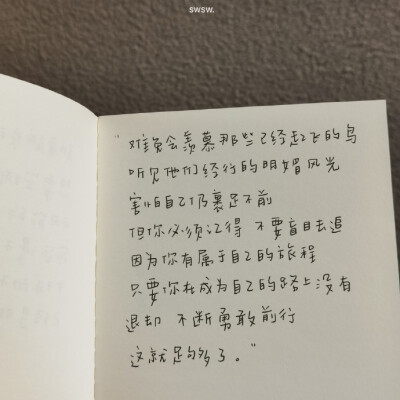 swsw.
"难免会羡慕那些已经起飞的鸟
听见他们经行的明媚风光
害怕自己仍裹足不前
但你必须记得 不要盲目去追
因为你有属于自己的旅程
只要你在成为自己的路上没有
退却 不断勇敢前行
这就足够了。"